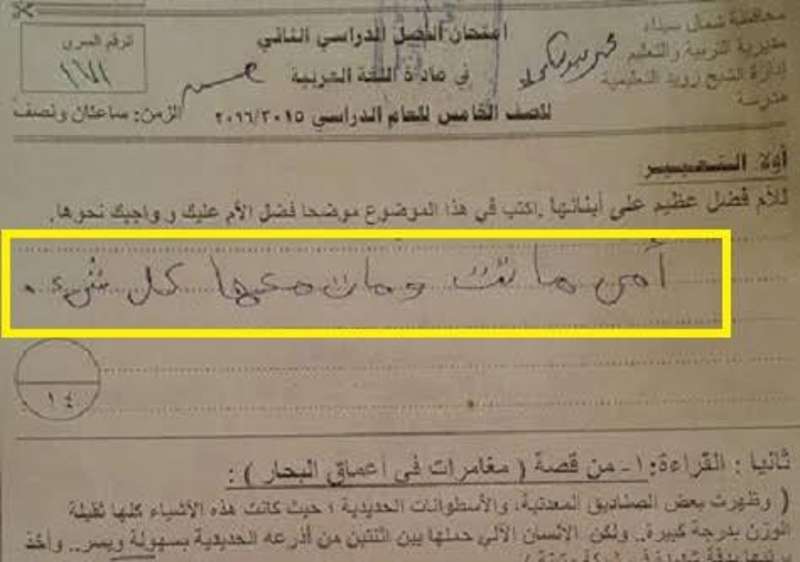 محافظة شمال سيناء
مديرية التربية والتعليم
إدارة الشيخ زويد التعليمية
مدرسة
امتحان الفصل الدراسي الثاني
في مادة اللغة العربية
للصف الخامس للعام الدراسي ٢٠١٦/٢٠١٥
الرقم السري
١٦٧١
الزمن: ساعتان ونصف
أولا التعبير:
للأم فضل عظيم على أبنائها .اكتب في هذا الموضوع موضحا فضل الأم عليك وواجبك نحوها.
أمي ماتت ومات معها كل شيء.
١٤
ثانيا : القراءة: ١- من قصة ( مغامرات في أعماق البحار ) :
( وظهرت بعض الصناديق المعدنية، والأسطوانات الحديدية ؛ حيث كانت هذه الأشياء كلها ثقيلة
الوزن بدرجة كبيرة.. ولكن الانسان الآلي حملها بين اثنتين من أذرعه الحديدية بسهولة ويسر.. وأخذ